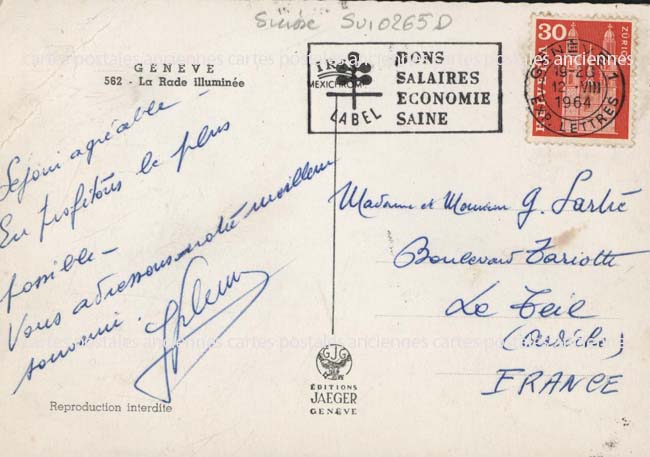 Suisse Sui0265D
GENEVE
562 - La Rade illuminée
MEXICHROM
LABEL
BONS
SALAIRES
ECONOMIE
SAINE
30
HELVETIA
ZURICH
GENEVE 1
19-20
12 VIII
1964
EXP. LETTRES
cartes postales anciennes cartes postales anciennes cartes postales anciennes
Séjour agréable -
En profitons le plus
possible -
Vous adressons notre meilleur
souvenir.
Madame et Monsieur G.
Boulevard
Le Teil
(Ardèche)
FRANCE
cartes postales anciennes cartes postales anciennes cartes postales anciennes
GJG
ÉDITIONS
JAEGER
GENÈVE
Reproduction interdite